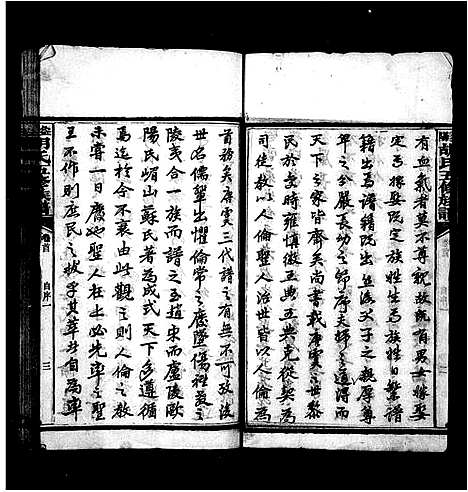 有血氣者莫不尊親故既有男女嫁娶
定為嫁娶既定族姓生焉族姓日繁譜
籍出焉譜籍既出並後父子之親厚尊
卑之分嚴長幼之節序夫婦之道得而
天下於是家齊矣尚書載唐虞之世黎
民於變時雍慎徽五典五典克從孰
非首以人倫聖人治世皆以人倫為
首務矣唐虞三代譜之有無不可攷後
世名儒輩出懼倫常之廢墜傷禮義之
陵夷合一族而譜之焉迨宋而廬陵歐
陽氏嵋山蘇氏著為成式天下多遵循
焉迄於今不衰由此觀之則人倫之教
未嘗一日廢也聖人在上必先率之聖
王不作則庶民之秀字其萃者自為率
五修族譜
卷首
自序一
三